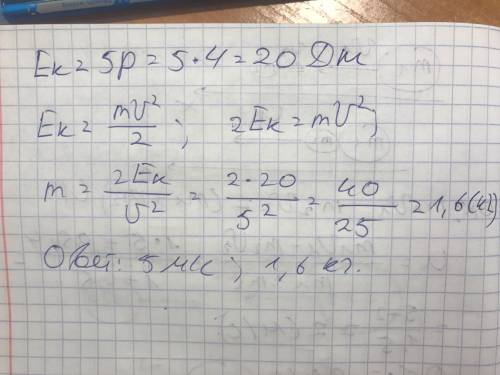 Ек = 5p = 5·4 = 20 Дж
Ек = mV²/2 ; 2Ек = mV²;
m = 2Ек/V² = 2·20/5² = 40/25 = 1,6 (кг)
Ответ: 5 м/с ; 1,6 кг.